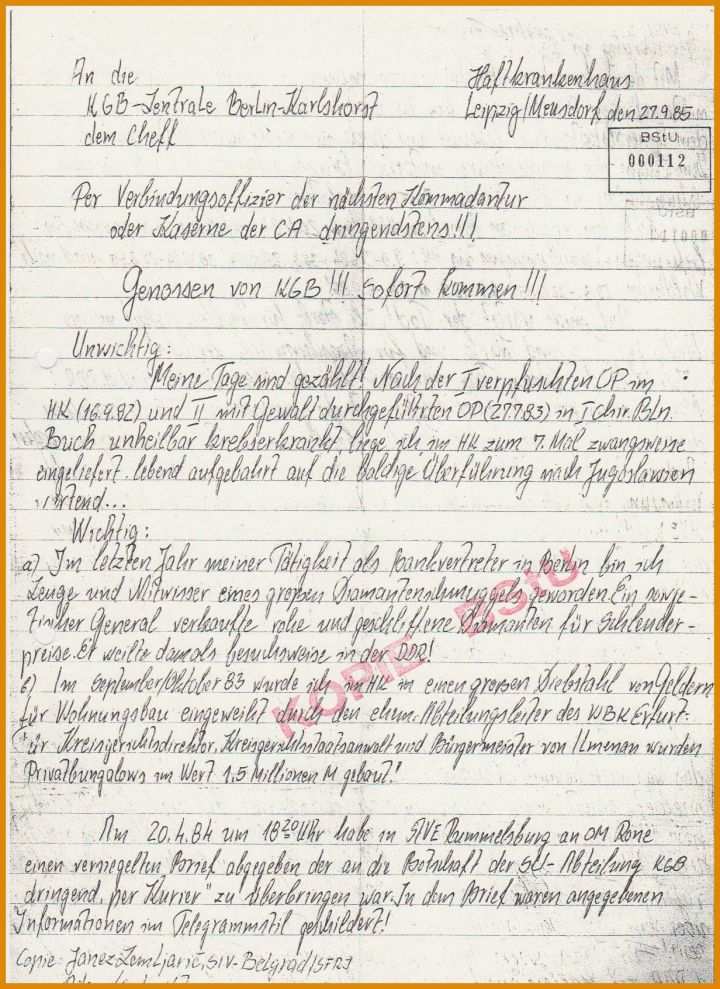 An die
KGB-Zentrale Berlin-Karlshorst
dem Cheff
Haftkrankenhaus
Leipzig/Meusdorf, den 27.9.85
BStU
000112
Per Verbindungsoffizier der nächsten Kommadantur
oder Kaserne der CA dringendstens!!!
Genossen von KGB!!! Sofort kommen!!!
Unwichtig:
Meine Tage sind gezählt! Nach der I verpfuschten OP im
HK (16.9.82) und II mit Gewalt durchgeführten OP (27.7.83) in I Chir. Bln.
Buch unheilbar krebserkrankt, liege ich im HK zum 7. Mal zwangsweise
eingeliefert, lebend aufgebahrt auf die baldige Überführung nach Jugoslawien
wartend...
Wichtig:
a) Im letzten Jahr meiner Tätigkeit als Bankvertreter in Berlin bin ich
Zeuge und Mitwisser eines großen Diamantenschmuggels geworden. Ein sowje-
tischer General verkaufte rohe und geschliffene Diamanten für Schleuder-
preise. Er weilte damals besuchsweise in der DDR!
b) Im September/Oktober 83 wurde ich im HK in einen grossen Diebstahl von Geldern
für Wohnungsbau eingeweiht durch den ehem. Abteilungsleiter des WBK Erfurt.
Für Kreisgerichtsdirektor, Kreisgerichtsstaatsanwalt und Bürgermeister von Ilmenau wurden
Privatbungalows im Wert 1,5 Millionen M gebaut!
KOPIE BStU
Am 20.4.84 um 18 20 Uhr habe in StVE Rummelsburg an OM Rone
einen versiegelten Brief abgegeben der an die Botschaft der SU- Abteilung KGB
dringend „per Kurier" zu überbringen war. In dem Brief waren angegebenen
Informationen im Telegrammstil geschildert!
Copie: Janez Zemljarič, SIV-Belgrad/SFRJ